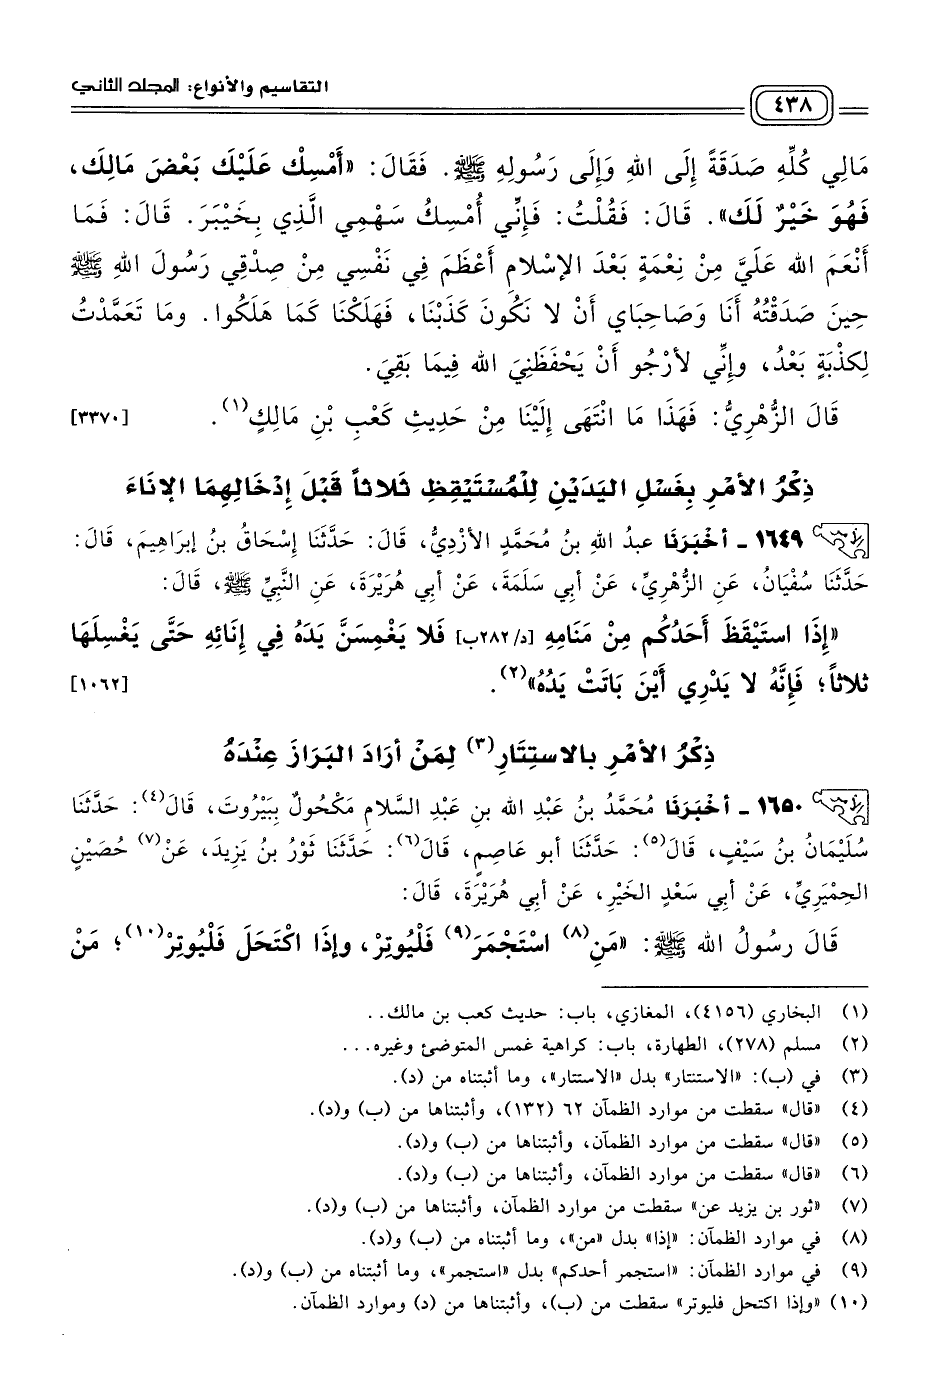 التقاسيم والأنواع: المجلد الثاني
٤٣٨
مَالِي كُلِّهِ صَدَقَةً إِلَى اللهِ وَإِلَى رَسُولِهِ ﷺ. فَقَالَ: «أَمْسِكْ عَلَيْكَ بَعْضَ مَالِكَ،
فَهُوَ خَيْرٌ لَكَ». قَالَ: فَقُلْتُ: فَإِنِّي أُمْسِكُ سَهْمِي الَّذِي بِخَيْبَرَ. قَالَ: فَمَا
أَنْعَمَ الله عَلَيَّ مِنْ نِعْمَةٍ بَعْدَ الإِسْلامِ أَعْظَمَ فِي نَفْسِي مِنْ صِدْقِي رَسُولَ اللهِ ﷺ
حِينَ صَدَقْتُهُ أَنَا وَصَاحِبَاي أَنْ لا نَكُونَ كَذَبْنَا، فَهَلَكْنَا كَمَا هَلَكُوا. ومَا تَعَمَّدْتُ
لِكِذْبَةٍ بَعْدُ، وإِنِّي لأَرْجُو أَنْ يَحْفَظَنِيَ الله فِيمَا بَقِيَ.
قَالَ الزُّهْرِيُّ: فَهَذَا مَا انْتَهَى إِلَيْنَا مِنْ حَدِيثِ كَعْبِ بْنِ مَالِكٍ(١). [٣٣٧٠]
ذِكْرُ الأَمْرِ بِغَسْلِ اليَدَيْنِ لِلْمُسْتَيْقِظِ ثَلاثاً قَبْلَ إِدْخَالِهِمَا الإِنَاءَ
١٦٤٩ - أخْبَرَنَا عبدُ الله بنُ مُحَمَّدٍ الأزْدِيُّ، قَالَ: حَدَّثَنَا إِسْحَاقُ بنُ إبرَاهِيمَ، قَالَ:
حَدَّثَنَا سُفْيَانُ، عَنِ الزُّهْرِيِّ، عَنْ أبي سَلَمَةَ، عَنْ أبي هُرَيْرَةَ، عَنِ النَّبِيِّ ﷺ، قَالَ:
«إِذَا اسْتَيْقَظَ أَحَدُكُم مِنْ مَنَامِهِ [د/٢٨٢ب] فَلا يَغْمِسَنَّ يَدَهُ فِي إِنَائِهِ حَتَّى يَغْسِلَهَا
ثلاثاً؛ فَإِنَّهُ لا يَدْرِي أَيْنَ بَاتَتْ يَدُهُ»(٢). [١٠٦٢]
ذِكْرُ الأَمْرِ بالاسِتِتَارِ(٣) لِمَنْ أرَادَ البَرَازَ عِنْدَهُ
١٦٥٠ - أخْبَرَنَا مُحَمَّدُ بنُ عَبْدِ الله بنِ عَبْدِ السَّلامِ مَكْحُولٌ بِبَيْرُوتَ، قَالَ(٤): حَدَّثَنَا
سُلَيْمَانُ بنُ سَيْفٍ، قَالَ(٥): حَدَّثَنَا أبو عَاصِمٍ، قَالَ(٦): حَدَّثَنَا ثَوْرُ بنُ يَزِيدَ، عَنْ(٧) حُصَيْنٍ
الحِمْيَرِيِّ، عَنْ أبي سَعْدِ الخَيْرِ، عَنْ أبي هُرَيْرَةَ، قَالَ:
قَالَ رسُولُ الله ﷺ: «مَنِ(٨) اسْتَجْمَرَ(٩) فَلْيُوتِرْ، وإذَا اكْتَحَلَ فَلْيُوتِرْ(١٠)؛ مَنْ
(١) البخاري (٤١٥٦)، المغازي، باب: حديث كعب بن مالك..
(٢) مسلم (٢٧٨)، الطهارة، باب: كراهية غمس المتوضئ وغيره...
(٣) في (ب): «الاستنتار» بدل «الاستتار»، وما أثبتناه من (د).
(٤) «قال» سقطت من موارد الظمآن ٦٢ (١٣٢)، وأثبتناها من (ب) و(د).
(٥) «قال» سقطت من موارد الظمآن، وأثبتناها من (ب) و(د).
(٦) «قال» سقطت من موارد الظمآن، وأثبتناها من (ب) و(د).
(٧) «ثور بن يزيد عن» سقطت من موارد الظمآن، وأثبتناها من (ب) و(د).
(٨) في موارد الظمآن: «إذا» بدل «من»، وما أثبتناه من (ب) و(د).
(٩) في موارد الظمآن: «استجمر أحدكم» بدل «استجمر»، وما أثبتناه من (ب) و(د).
(١٠) «وإذا اكتحل فليوتر» سقطت من (ب)، وأثبتناها من (د) وموارد الظمآن.